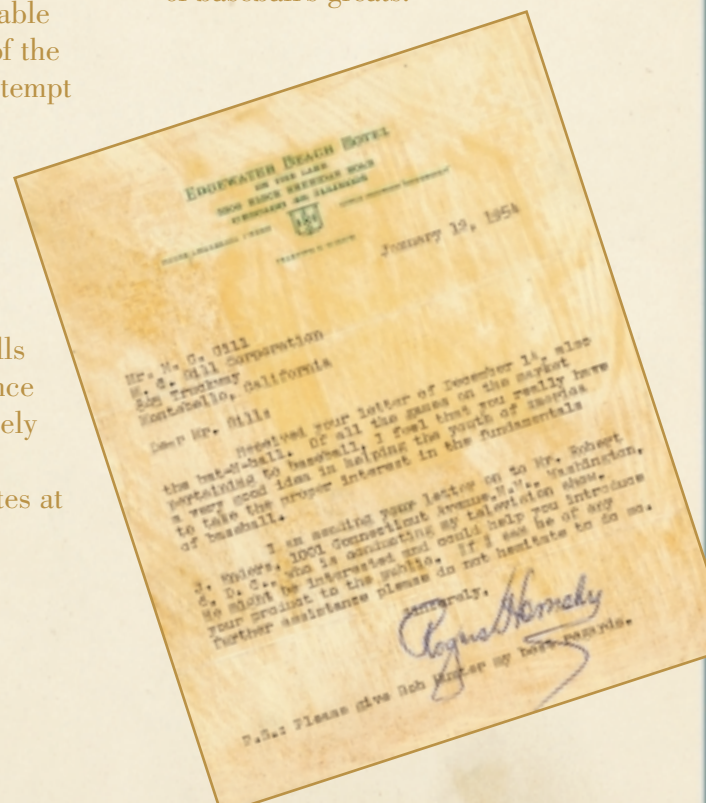 able
of the
tempt
of baseball's greats.
lls
nce
ely
tes at
EDGEWATER BEACH HOTEL
ON THE LAKE
5300 BLOCK SHERIDAN ROAD
CHICAGO 40 ILLINOIS
January 12, 1954
Mr. M. C. Gill
M. C. Gill Corporation
Truckway
Montebello, California
Dear Mr. Gill:
Received your letter of December 14, also
the bat-N-ball. Of all the games on the market
pertaining to baseball, I feel that you really have
a very good idea in helping the youth of America
to take the proper interest in the fundamentals
of baseball.
I am sending your letter on to Mr. Robert
J. Enders, 1001 Connecticut Avenue, N.W., Washington,
6, D. C., who is conducting my television show.
He might be interested and could help you introduce
your product to the public. If I can be of any
further assistance please do not hesitate to do so.
Sincerely,
Rogers Hornsby
P.S.: Please give Bob my best regards.